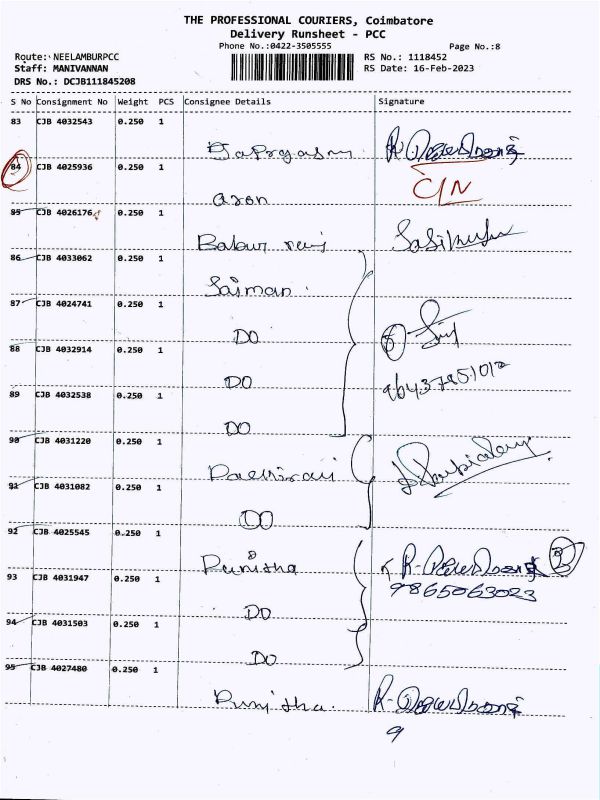 THE PROFESSIONAL COURIERS, Coimbatore
Delivery Runsheet - PCC
Phone No.:0422-3505555
Page No.:8
Route: NEELAMBURPCC
RS No.: 1118452
Staff: MANIVANNAN
RS Date: 16-Feb-2023
DRS No.: DCJB111845208
S No Consignment No Weight PCS Consignee Details Signature
83 CJB 4032543 0.250 1
84 CJB 4025936 0.250 1
C/N
aron
85 CJB 4026176 0.250 1
86 CJB 4033062 0.250 1
Saiman
87 CJB 4024741 0.250 1
DO
88 CJB 4032914 0.250 1
DO
89 CJB 4032538 0.250 1
DO
90 CJB 4031220 0.250 1
91 CJB 4031082 0.250 1
DO
92 CJB 4025545 0.250 1
Punitha
93 CJB 4031947 0.250 1
9865063023
DO
94 CJB 4031503 0.250 1
DO
95 CJB 4027480 0.250 1
Punitha.
9